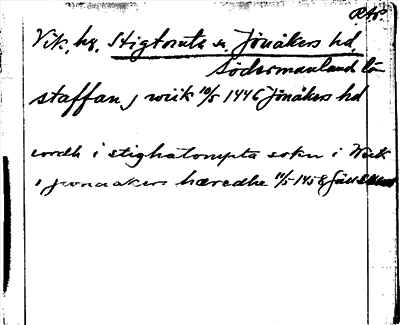 RAp.
Vik, hg. Stigtomta sn. Jönåkers hd.
Södermanland lä
staffan j wiik 10/5 1446 Jönåkers hd
iordh i stighatompta sokn i Wiik
i jwnaakers hæredhe 11/5 1458